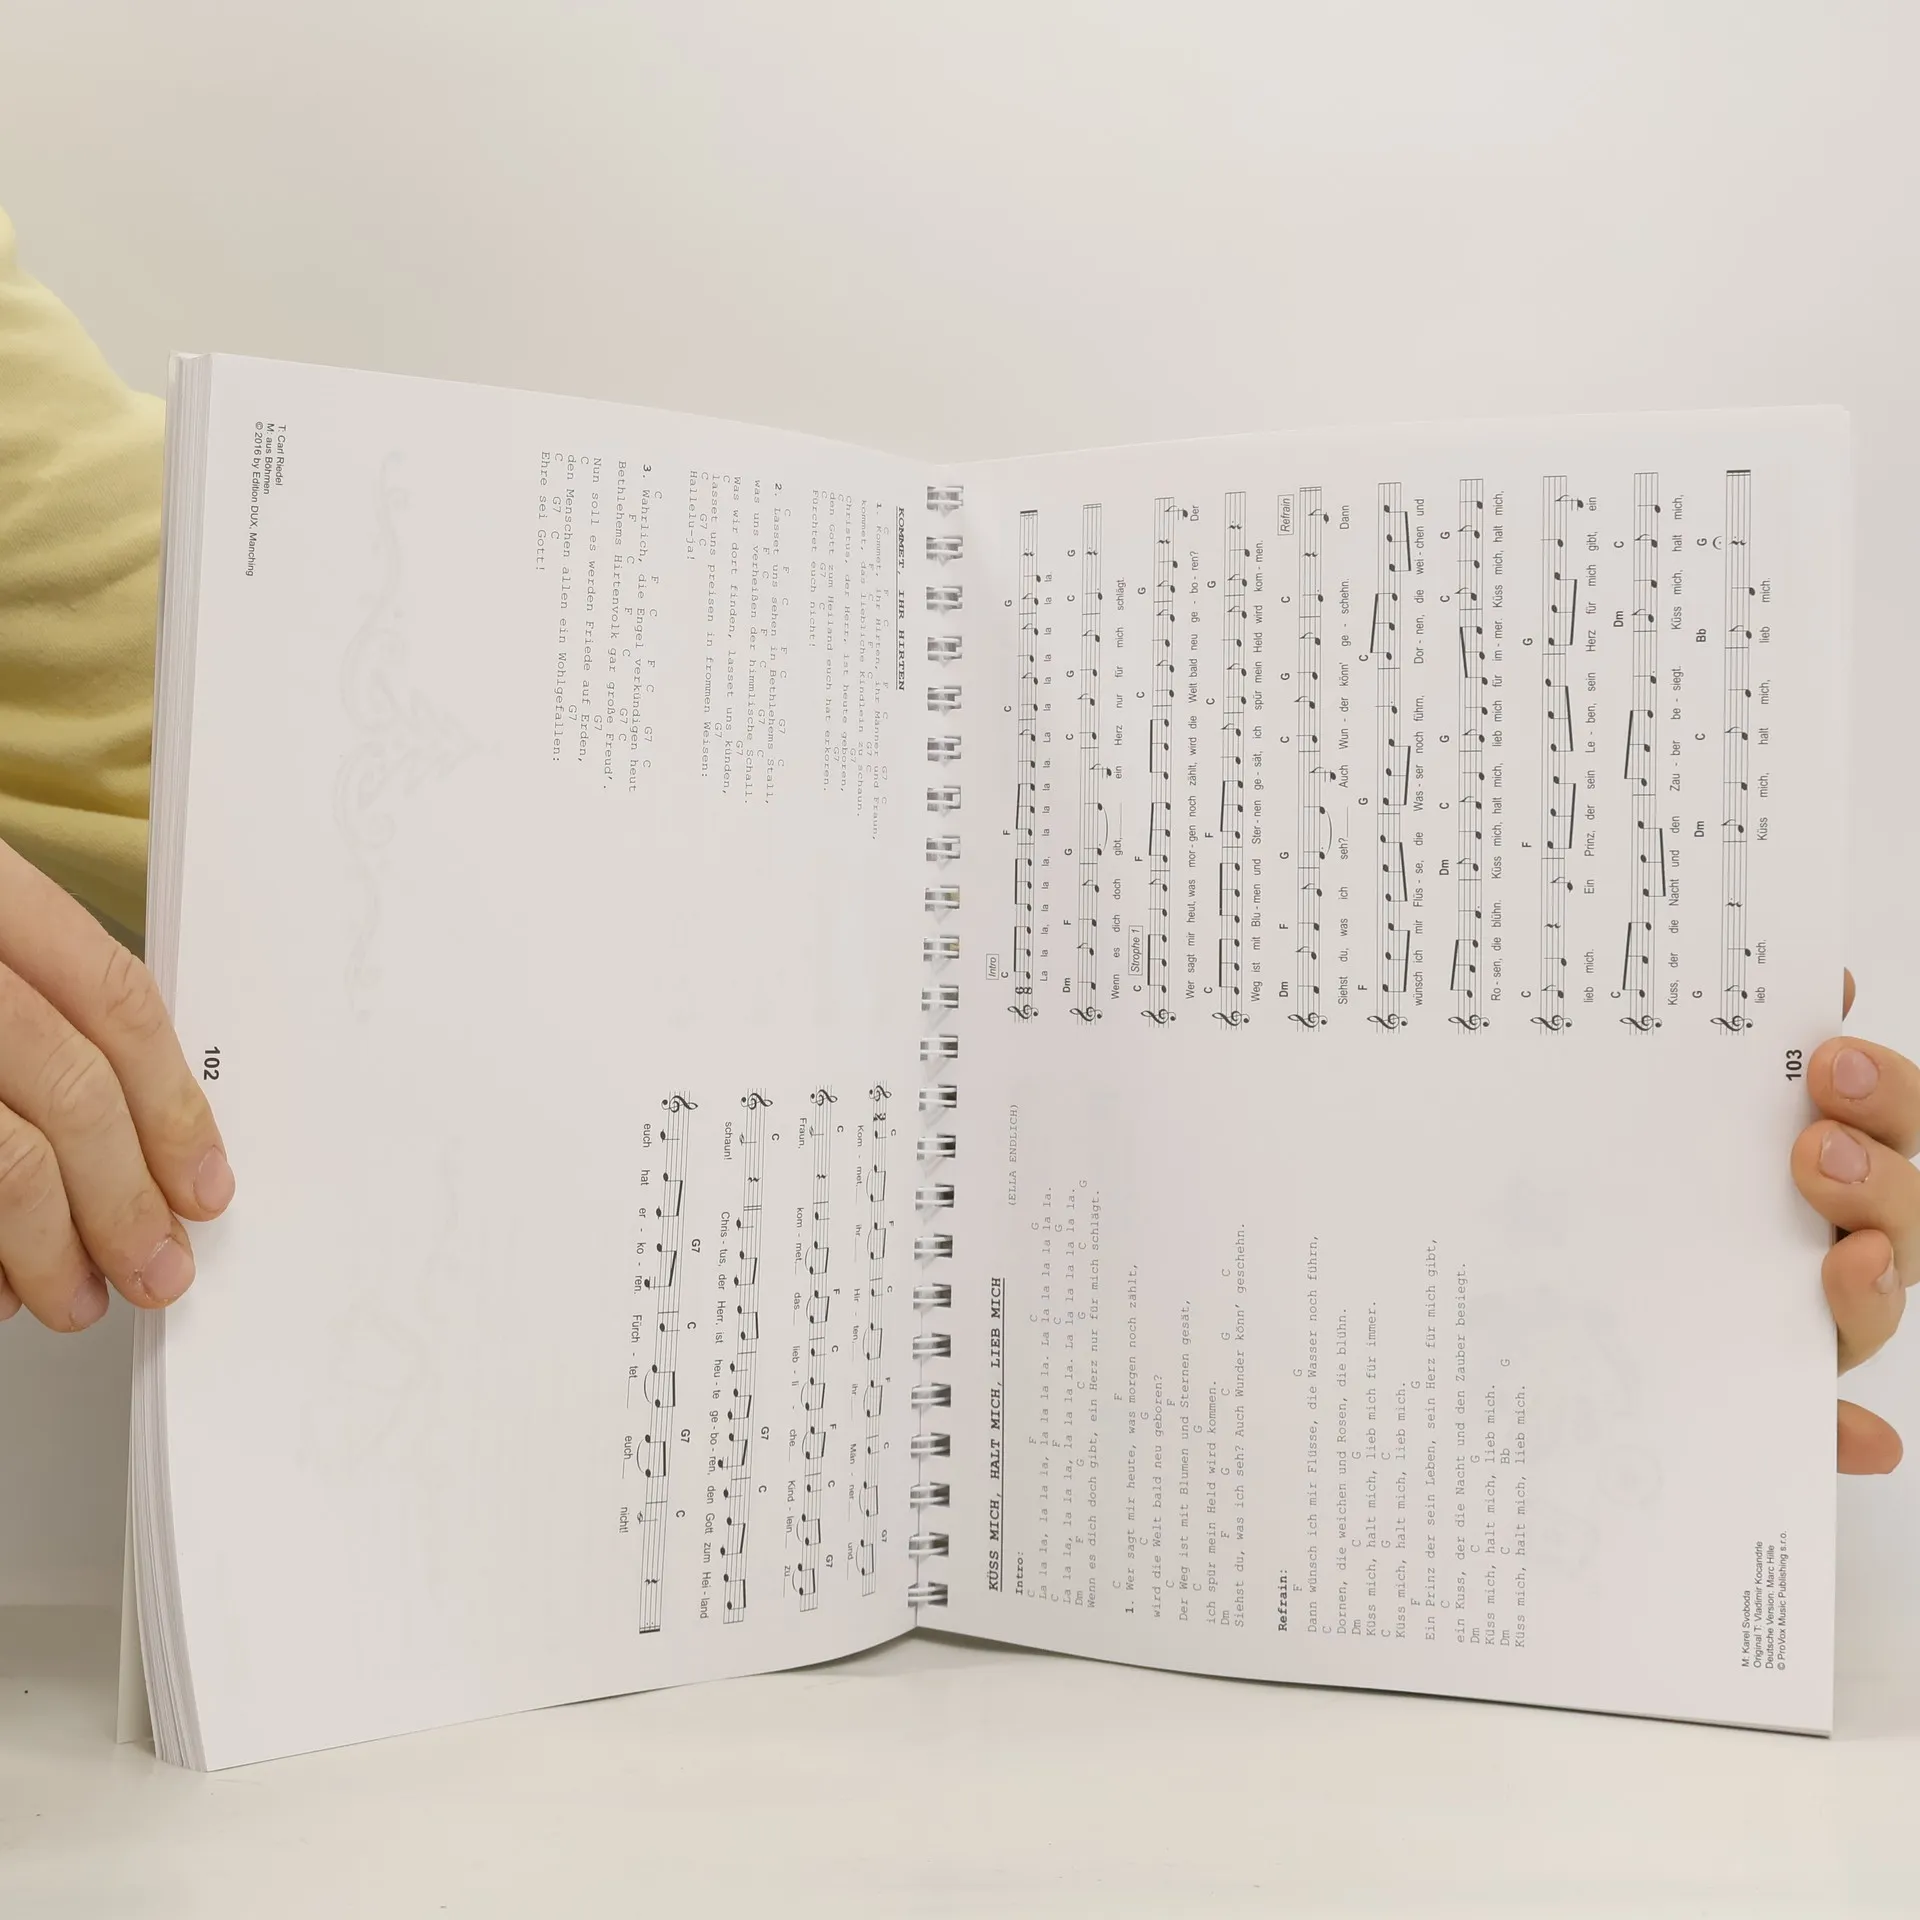 KOMMET, IHR HIRTEN
C F C F C G7 C
1. Kommet, ihr Hirten, ihr Männer und Fraun,
F C F C G7 C
kommet, das liebliche Kindlein zu schaun.
G7
Christus, der Herr, ist heute geboren,
C G7
den Gott zum Heiland euch hat erkoren.
C G7 C
Fürchtet euch nicht!
C F C F C G7 C
2. Lasset uns sehen in Bethlehems Stall,
F C F C G7 C
was uns verheißen der himmlische Schall.
G7
Was wir dort finden, lasset uns künden,
C G7
lasset uns preisen in frommen Weisen:
C G7 C
Hallelu-ja!
C F C F C G7 C
3. Wahrlich, die Engel verkündigen heut
F C F C G7 C
Bethlehems Hirtenvolk gar große Freud'.
G7
Nun soll es werden Friede auf Erden,
C G7
den Menschen allen ein Wohlgefallen:
C G7 C
Ehre sei Gott!
T: Carl Riedel
M: aus Böhmen
© 2016 by Edition DUX, Manching
C F C F C G7
Kom - met, ihr Hir - ten, ihr Män - ner und
C F C F C G7
Fraun, kom - met das lieb - li - che Kind - lein zu
C G7 C
schaun! Chris - tus, der Herr, ist heu - te ge - bo - ren, den Gott zum Hei - land
G7 C G7 C
euch hat er - ko - ren. Fürch - tet euch nicht!
102
KÜSS MICH, HALT MICH, LIEB MICH
(ELLA ENDLICH)
Intro:
C F C G
La la la, la la la, la la la la. La la la la la la la.
C F C G
La la la, la la la, la la la la. La la la la la la la.
Dm F G C G C G
Wenn es dich doch gibt, ein Herz nur für mich schlägt.
C F
1. Wer sagt mir heute, was morgen noch zählt,
C G
wird die Welt bald neu geboren?
C F
Der Weg ist mit Blumen und Sternen gesät,
C G
ich spür mein Held wird kommen.
Dm F G C G C
Siehst du, was ich seh? Auch Wunder könn' geschehn.
Refrain:
F G
Dann wünsch ich mir Flüsse, die Wasser noch führn,
C
Dornen, die weichen und Rosen, die blühn.
Dm C G
Küss mich, halt mich, lieb mich für immer.
C G C
Küss mich, halt mich, lieb mich.
F G
Ein Prinz der sein Leben, sein Herz für mich gibt,
C
ein Kuss, der die Nacht und den Zauber besiegt.
Dm C G
Küss mich, halt mich, lieb mich.
Dm C Bb G
Küss mich, halt mich, lieb mich.
M: Karel Svoboda
Original T: Vladimir Kocandrle
Deutsche Version: Marc Hille
© ProVox Music Publishing s.r.o.
Intro
C F C G
La la la, la la la, la la la la. La la la la la la la.
Dm F G C G C G
Wenn es dich doch gibt, ein Herz nur für mich schlägt.
Strophe 1
C F C G
Wer sagt mir heut, was mor - gen noch zählt, wird die Welt bald neu ge - bo - ren? Der
C F C G
Weg ist mit Blu - men und Ster - nen ge - sät, ich spür mein Held wird kom - men.
Dm F G C G C Refrain
Siehst du, was ich seh? Auch Wun - der könn' ge - schehn. Dann
F G C
wünsch ich mir Flüs - se, die Was - ser noch führn, Dor - nen, die wei - chen und
Dm C G C G
Ro - sen, die blühn. Küss mich, halt mich, lieb mich für im - mer. Küss mich, halt mich,
C F G
lieb mich. Ein Prinz, der sein Le - ben, sein Herz für mich gibt, ein
C Dm C
Kuss, der die Nacht und den Zau - ber be - siegt. Küss mich, halt mich,
G Dm C Bb G
lieb mich. Küss mich, halt mich, lieb mich.
103